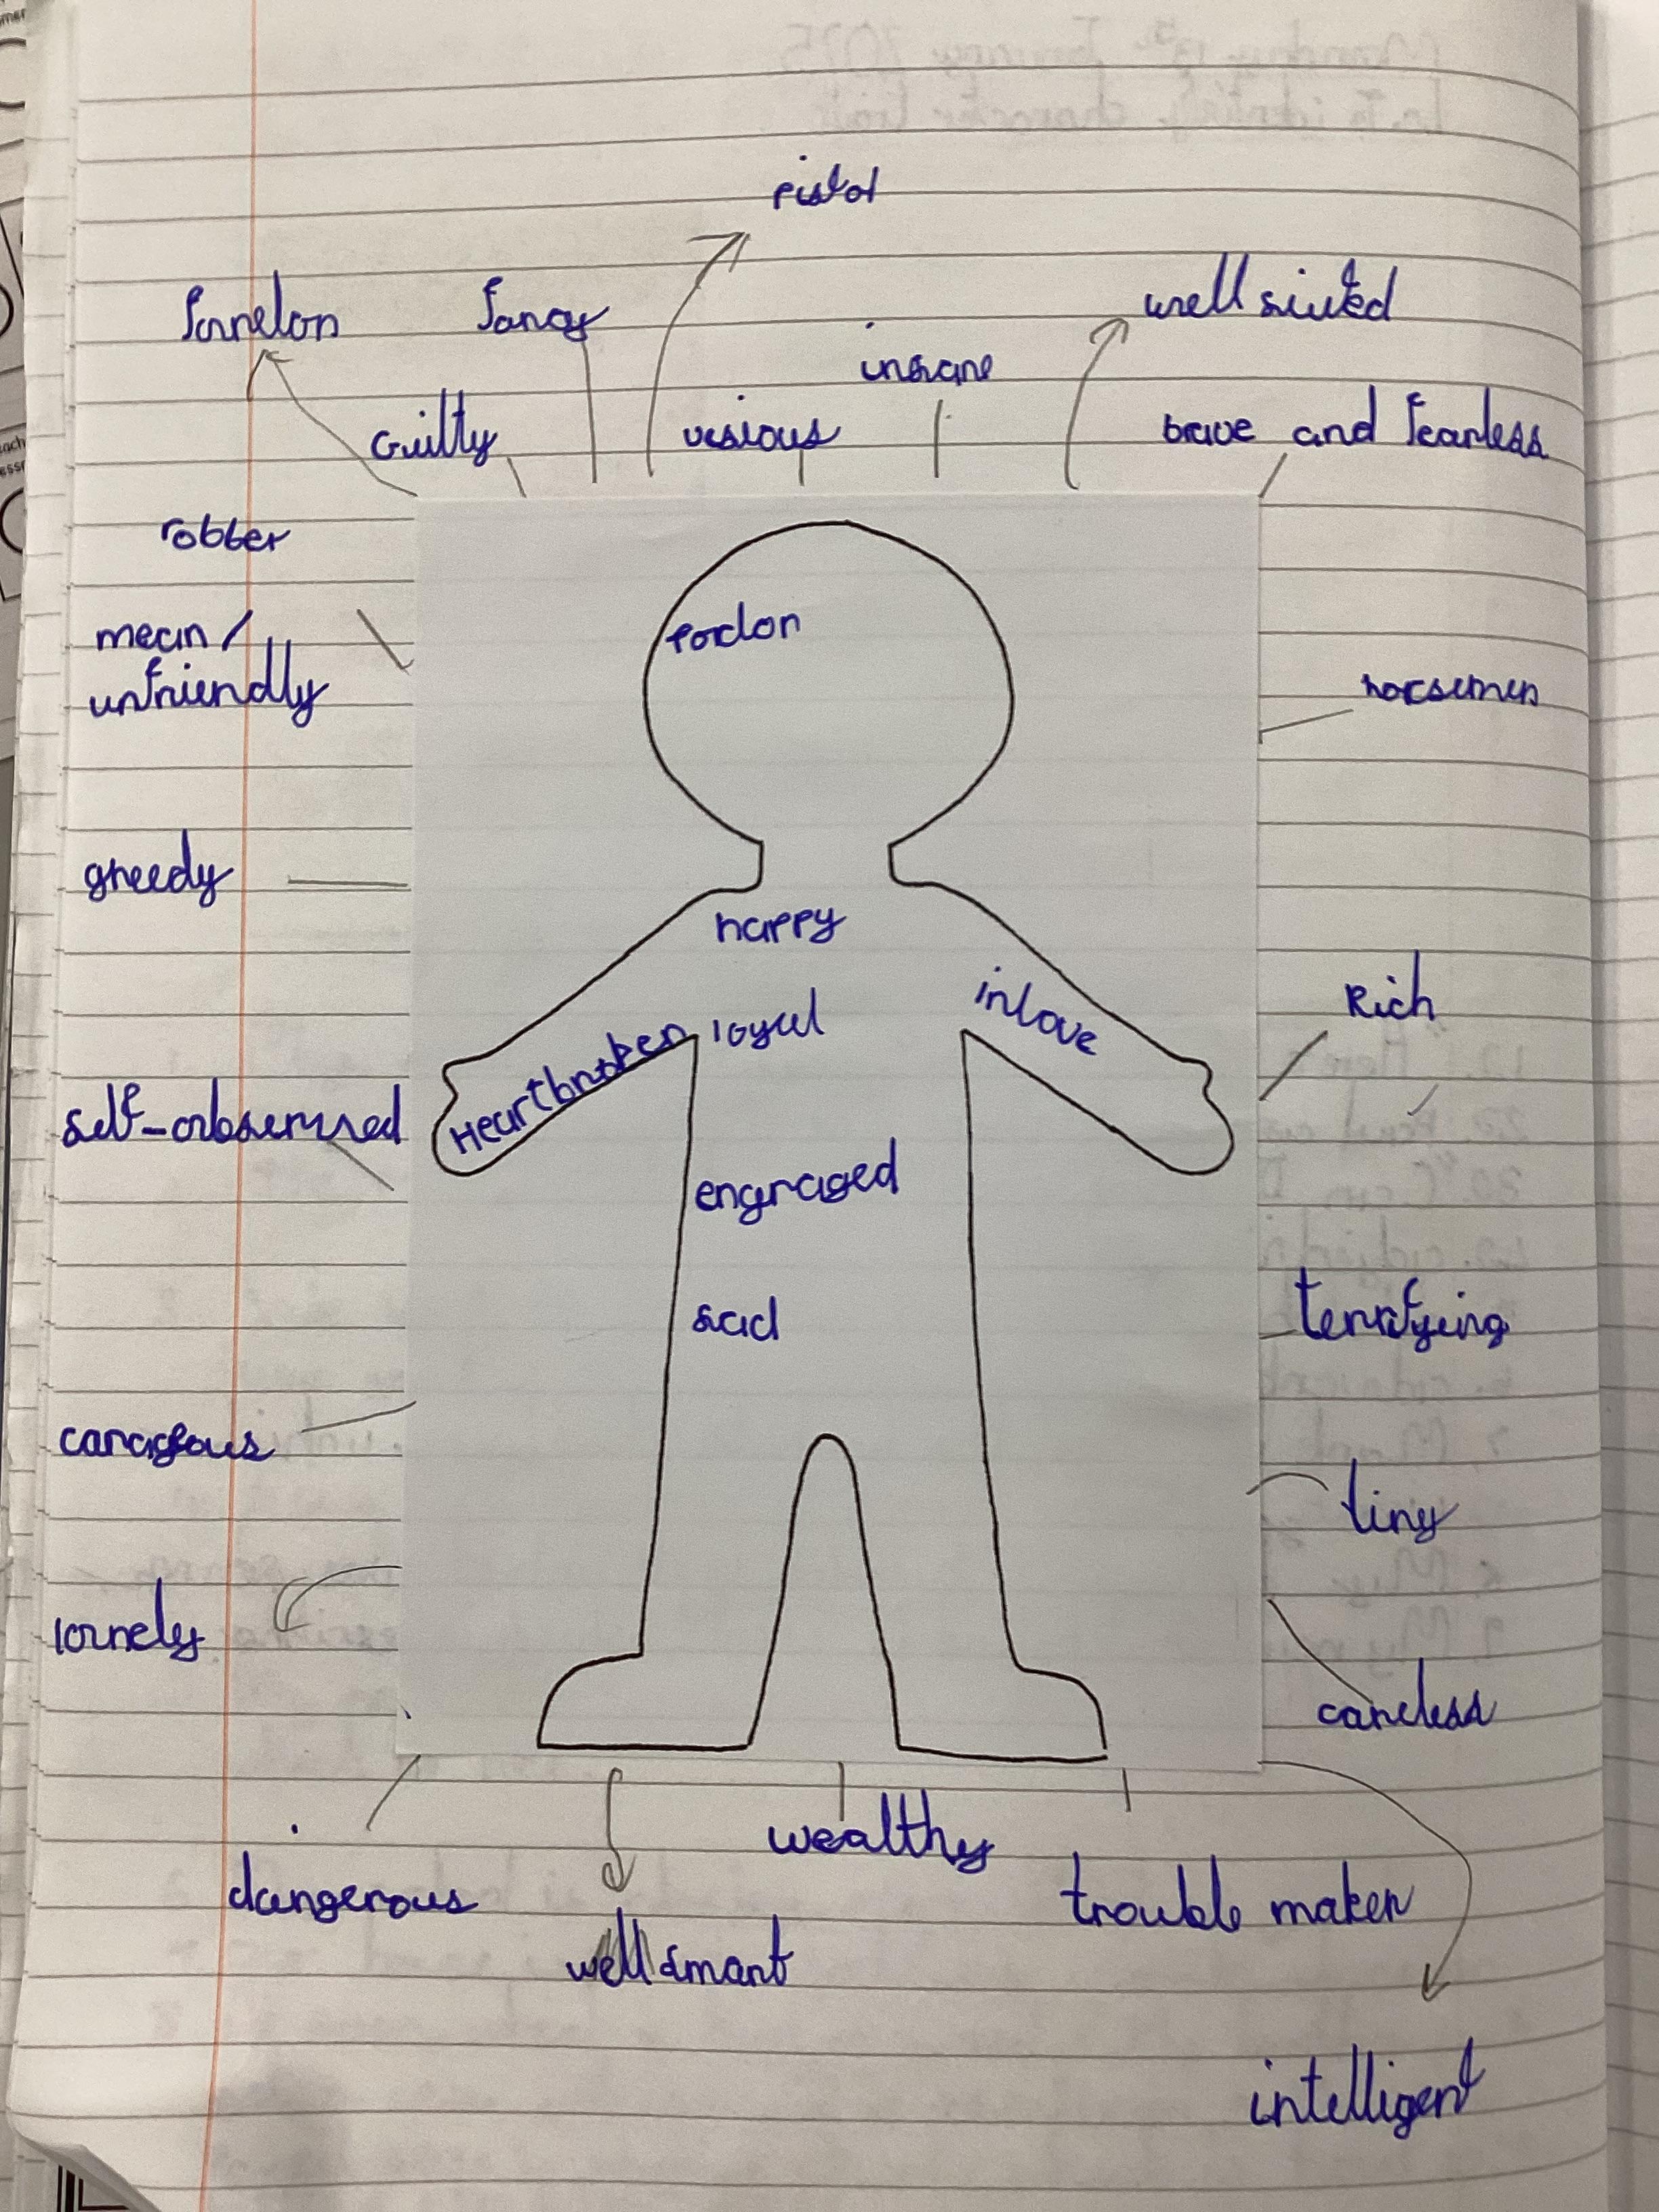 pistol
fancy
well suited
insane
Guilty
visious
brave and fearless
robber
mean/
unfriendly
horsemen
greedy
happy
Rich
loyal
inlove
Heartbroken
engraged
sad
terrifying
tiny
lornely
careless
dangerous
wealthy
trouble maker
well smart
intelligent